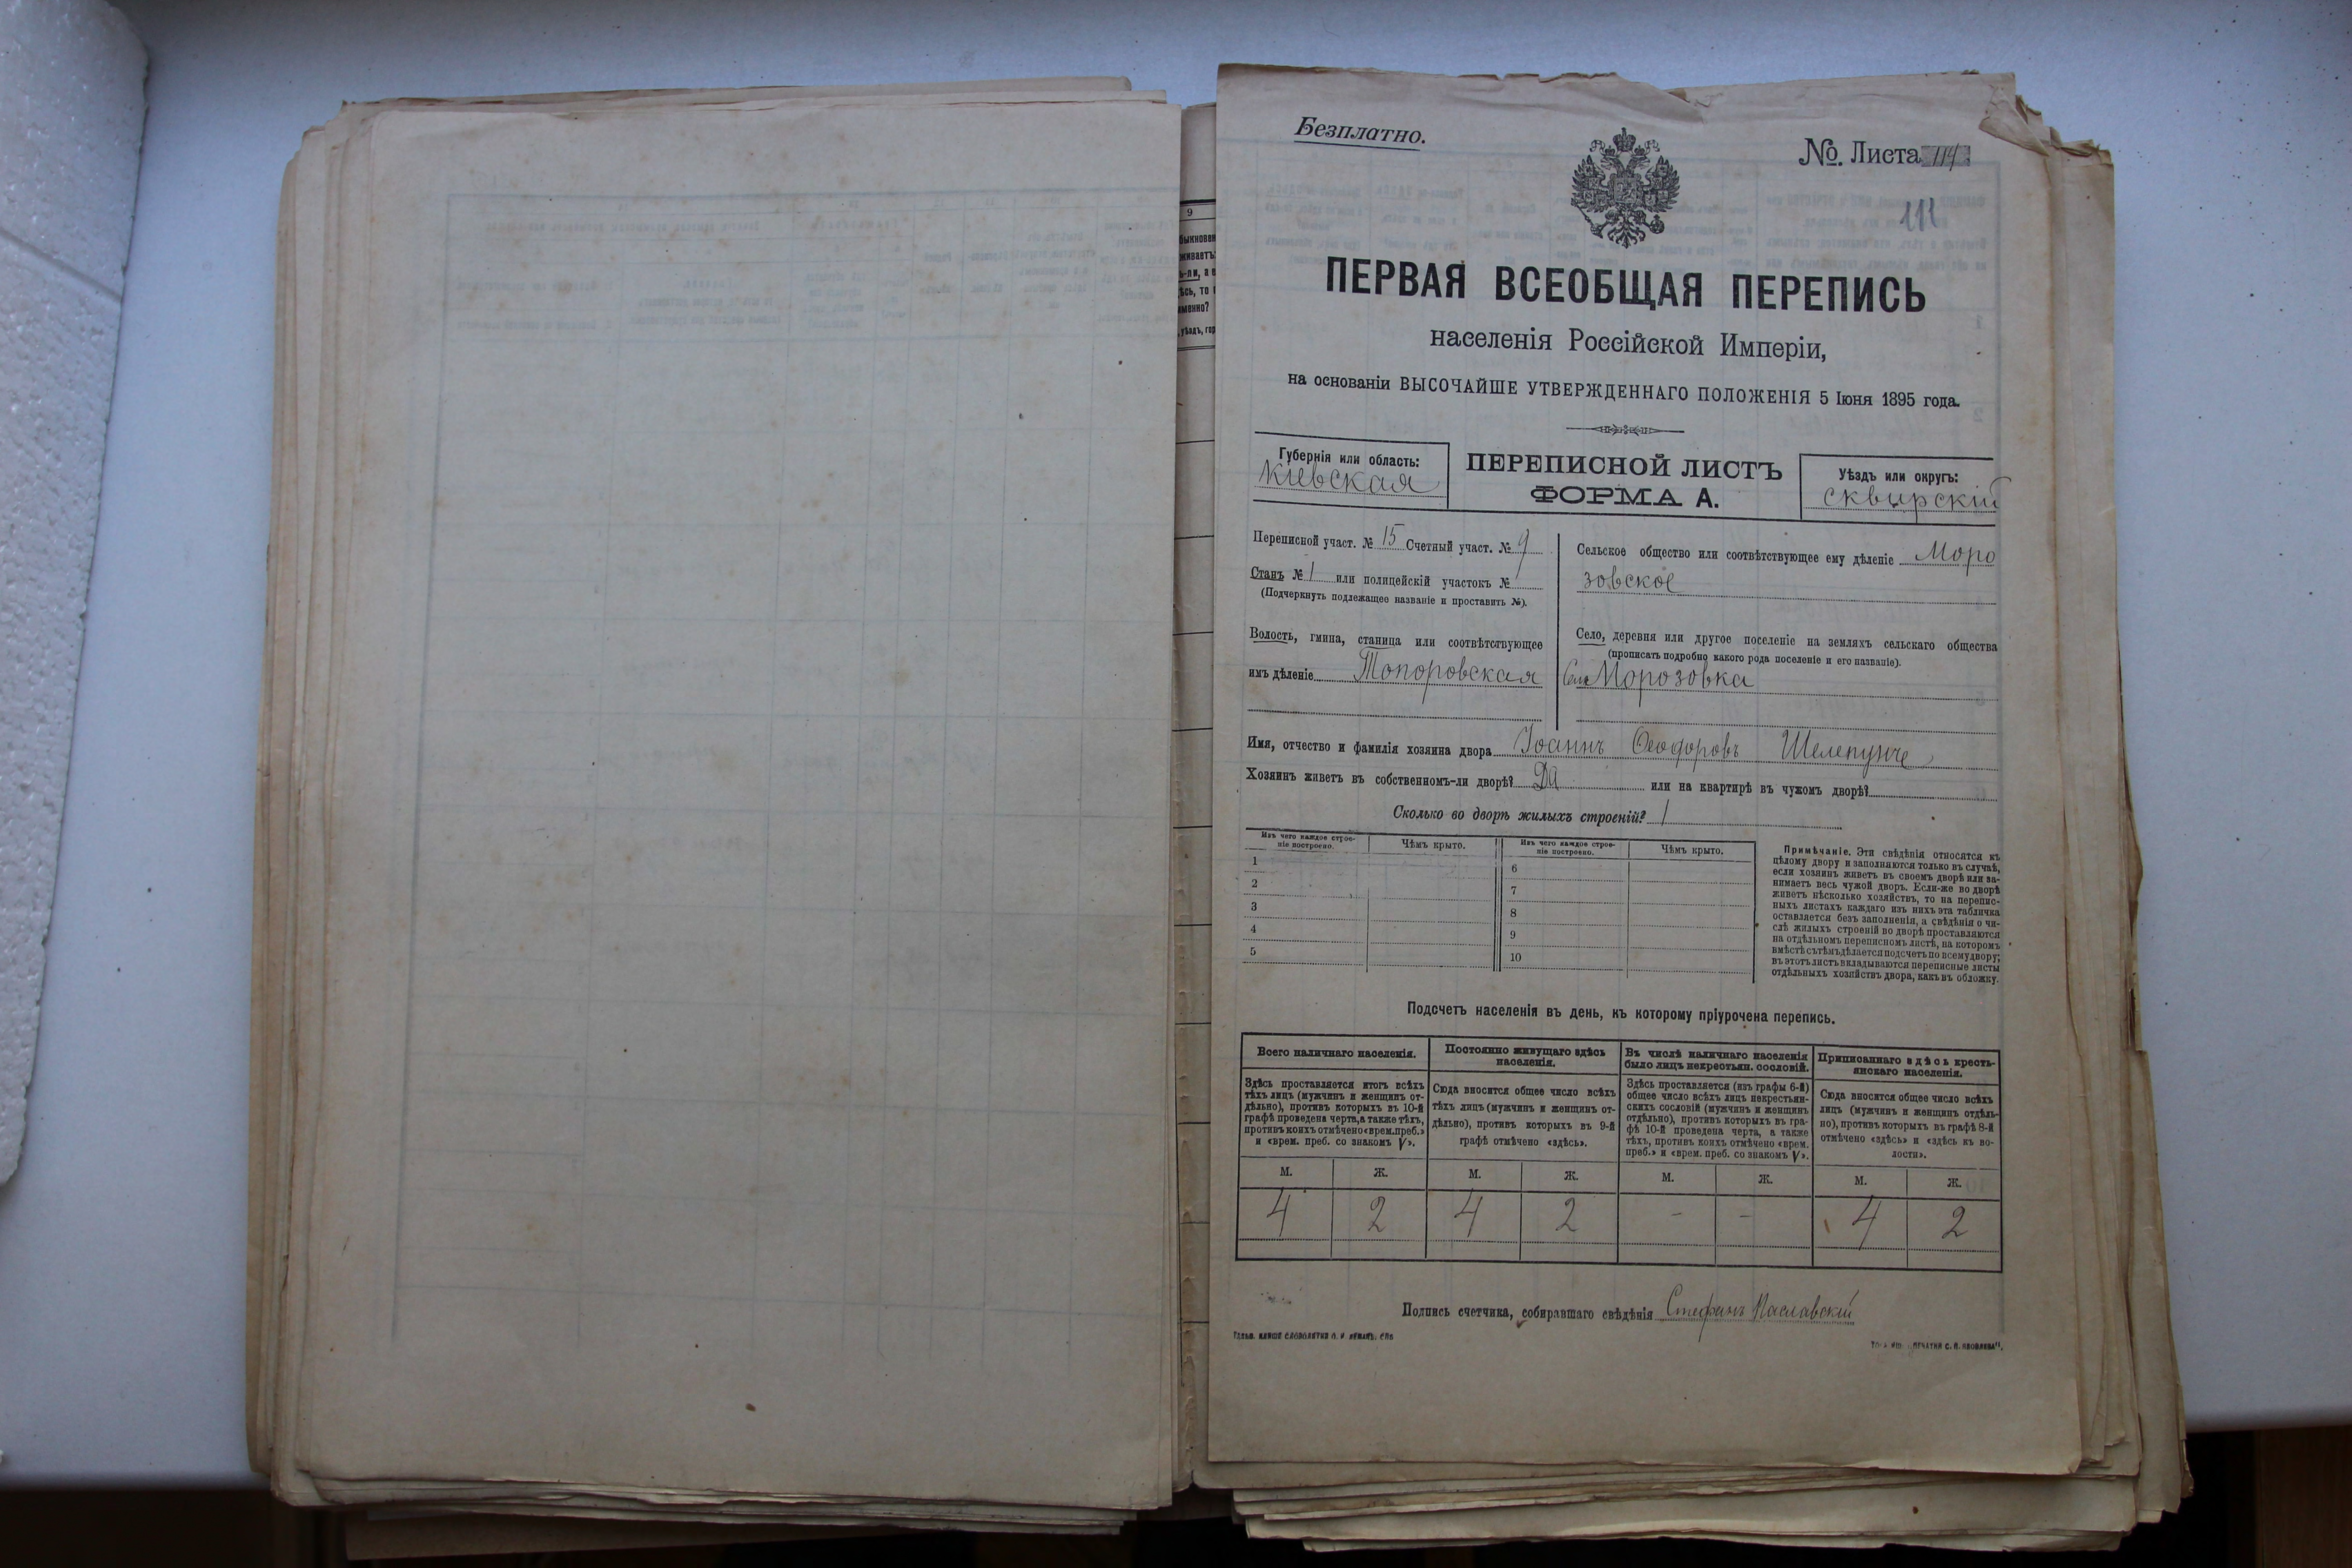 9
Безплатно.
№. Листа 114
111
ПЕРВАЯ ВСЕОБЩАЯ ПЕРЕПИСЬ
населенія Россійской Имперіи,
на основаніи ВЫСОЧАЙШЕ УТВЕРЖДЕННАГО ПОЛОЖЕНІЯ 5 Іюня 1895 года.
Губернія или область:
Кіевская
ПЕРЕПИСНОЙ ЛИСТЪ
ФОРМА А.
Уѣздъ или округъ:
Сквирскій
Переписной участ. № 15 Счетный участ. № 9
Станъ № 1 или полицейскій участокъ №
(Подчеркнуть подлежащее названіе и проставить №).
Волость, гмина, станица или соотвѣтствующее
имъ дѣленіе Топоровская
Сельское общество или соотвѣтствующее ему дѣленіе Моро
зовское
Село, деревня или другое поселеніе на земляхъ сельскаго общества
(прописать подробно какого рода поселеніе и его названіе).
Село Морозовка
Имя, отчество и фамилія хозяина двора Іоаннъ Ѳеодоровъ
Хозяинъ живетъ въ собственномъ-ли дворѣ? Да или на квартирѣ въ чужомъ дворѣ?
Сколько во дворѣ жилыхъ строеній? 1
Изъ чего каждое строе-
ніе построено.
Чѣмъ крыто.
Изъ чего каждое строе-
ніе построено.
Чѣмъ крыто.
1
2
3
4
5
6
7
8
9
10
Примѣчаніе. Эти свѣдѣнія относятся къ
цѣлому двору и заполняются только въ случаѣ,
если хозяинъ живетъ въ своемъ дворѣ или за-
нимаетъ весь чужой дворъ. Если-же во дворѣ
живетъ нѣсколько хозяйствъ, то на перепис-
ныхъ листахъ каждаго изъ нихъ эта табличка
оставляется безъ заполненія, а свѣдѣнія о чи-
слѣ жилыхъ строеній во дворѣ проставляются
на отдѣльномъ переписномъ листѣ, на которомъ
вмѣстѣ съ тѣмъ дѣлается подсчетъ по всему двору;
въ этотъ листъ вкладываются переписные листы
отдѣльныхъ хозяйствъ двора, какъ въ обложку.
Подсчетъ населенія въ день, къ которому пріурочена перепись.
Всего наличнаго населенія.
Здѣсь проставляется итогъ всѣхъ
тѣхъ лицъ (мужчинъ и женщинъ от-
дѣльно), противъ которыхъ въ 10-й
графѣ проведена черта, а также тѣхъ,
противъ коихъ отмѣчено «врем. преб.»
и «врем. преб. со знакомъ V».
Постоянно живущаго здѣсь
населенія.
Сюда вносится общее число всѣхъ
тѣхъ лицъ (мужчинъ и женщинъ от-
дѣльно), противъ которыхъ въ 9-й
графѣ отмѣчено «здѣсь».
Въ числѣ наличнаго населенія
было лицъ некрестьян. сословій.
Здѣсь проставляется (изъ графы 6-й)
общее число всѣхъ лицъ некрестьян-
скихъ сословій (мужчинъ и женщинъ
отдѣльно), противъ которыхъ въ гра-
фѣ 10-й проведена черта, а также
тѣхъ, противъ коихъ отмѣчено «врем.
преб.» и «врем. преб. со знакомъ V».
Приписаннаго здѣсь кресть-
янскаго населенія.
Сюда вносится общее число всѣхъ
лицъ (мужчинъ и женщинъ отдѣль-
но), противъ которыхъ въ графѣ 8-й
отмѣчено «здѣсь» и «здѣсь къ во-
лости».
М. Ж. М. Ж. М. Ж. М. Ж.
4 2 4 2 - - 4 2
Подпись счетчика, собиравшаго свѣдѣнія Стефанъ Паславскій